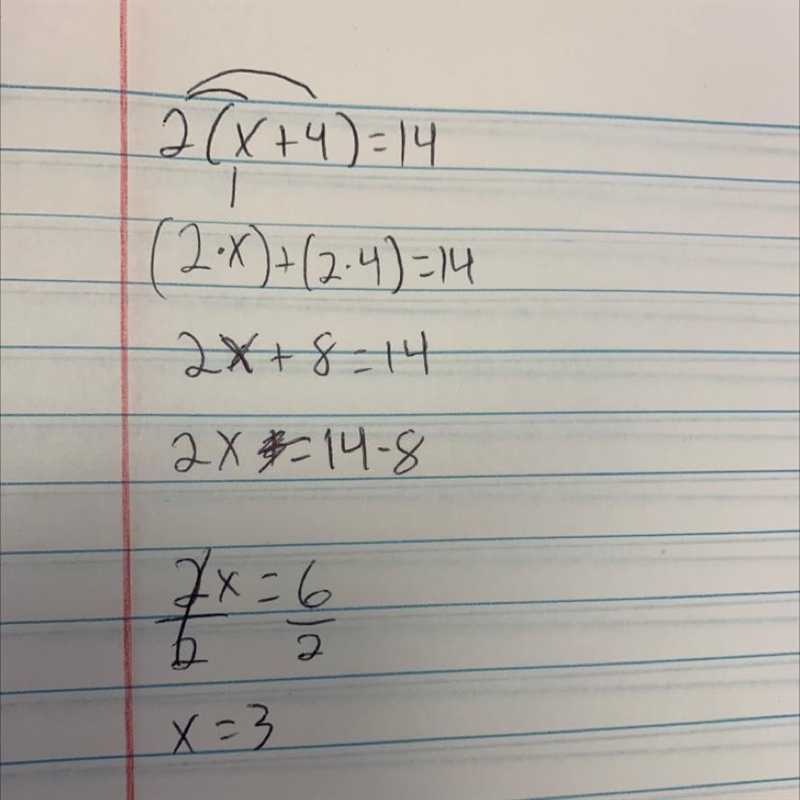 2(x+4)=14
(2·x)+(2·4)=14
2x+8=14
2x=14-8
2x=6
2 2
x=3